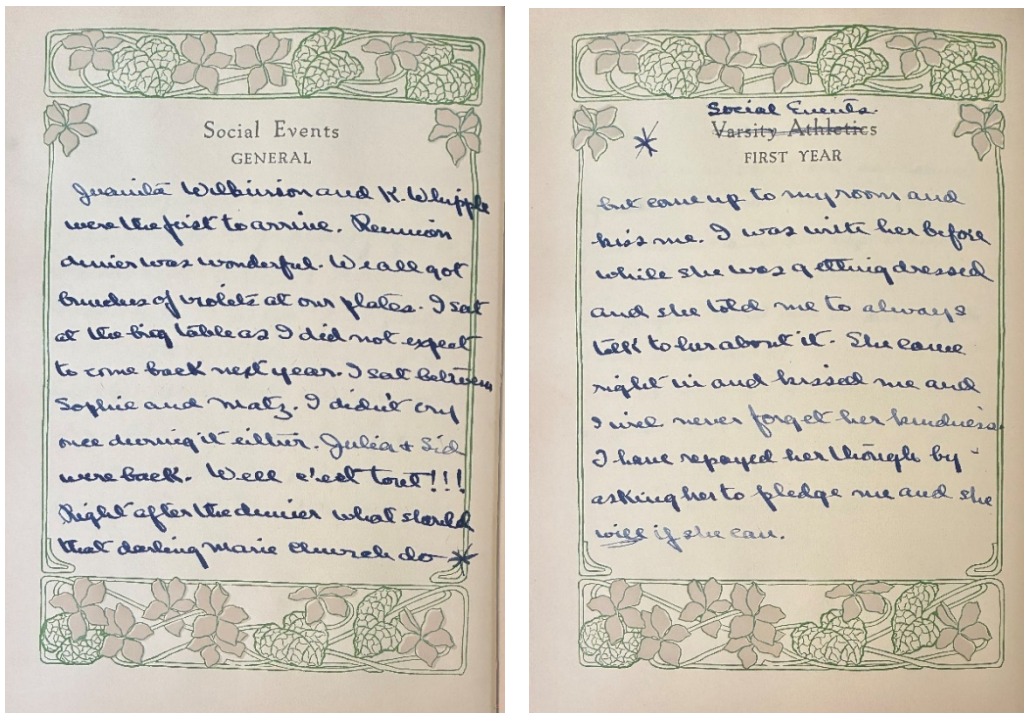 Social Events
GENERAL
Juanita Wilkinson and K. Whipple
were the first to arrive. Reunion
dinner was wonderful. We all got
bunches of violets at our plates. I sat
at the big table as I did not expect
to come back next year. I sat between
Sophie and Matz. I didn't cry
once during it either. Julia + Sid
were back. Well c'est tout!!!
Right after the dinner what should
that darling Marie Church do *
Social Events.
Varsity Athletics
* FIRST YEAR
but come up to my room and
kiss me. I was with her before
while she was getting dressed
and she told me to always
talk to her about it. She came
right in and kissed me and
I will never forget her kindness.
I have repayed her though by -
asking her to pledge me and she
will if she can.